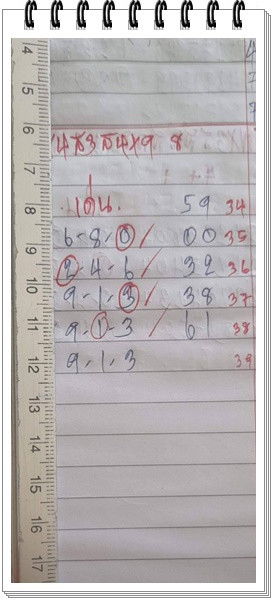 เด่น. 59 34
6-8-0/ 00 35
2-4-6/ 32 36
9-1-3/ 38 37
9-1-3/ 61 38
9-1-3 39
4
5
6
7
8
9
10
11
12
13
14
15
16
17